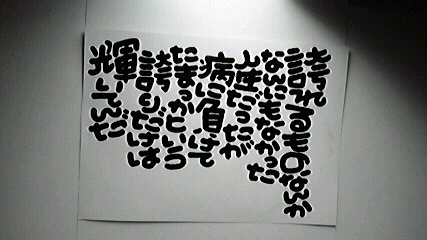 誇れるものなんか
なんにもなかった
人生だったが
病に負けて
たまっかという
誇りだけは
輝いてんだ